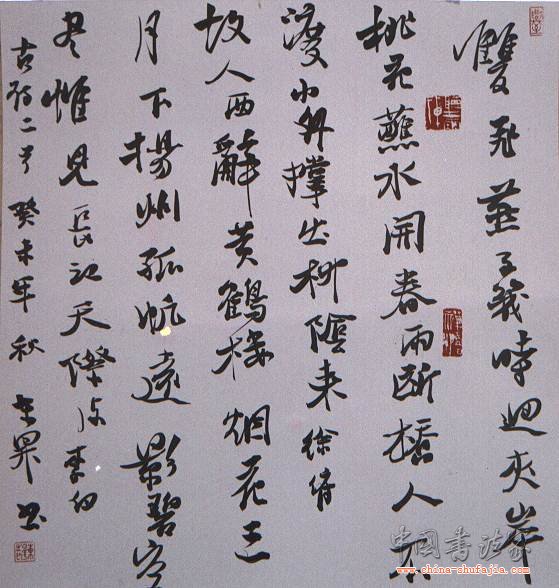 雙飛燕子幾時迴夾岸
桃花蘸水開春雨斷橋人不
渡小舟撐出柳陰來徐俯
故人西辭黄鶴樓烟花三
月下揚州孤帆遠影碧空
盡惟見長江天際流李白
古詩二首癸未年秋書
中国书法家
www.china-shufajia.com